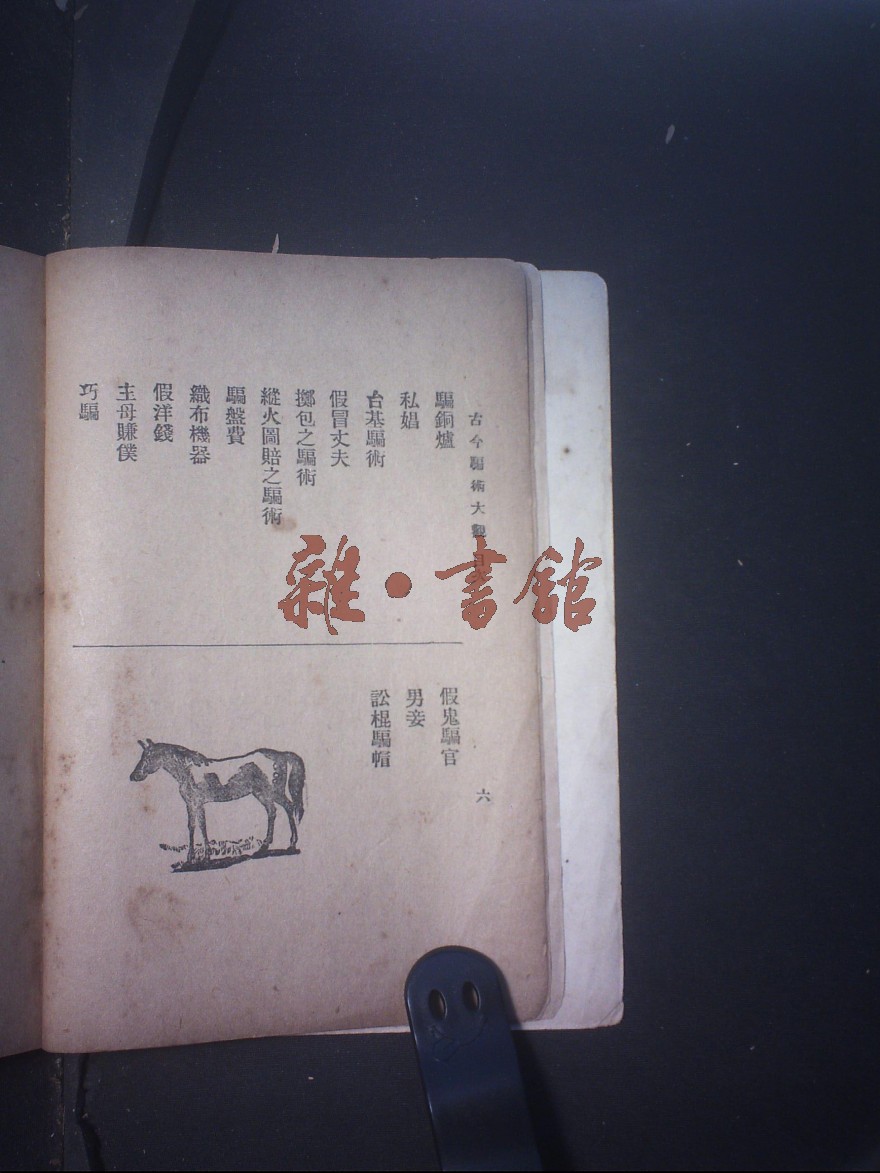 古今騙術大觀 目次
騙銅爐
私娼
台基騙術
假冒丈夫
擲包之騙術
縱火圖賠之騙術
騙盤費
織布機器
假洋錢
主母賺僕
巧騙
假鬼騙官
男妾
訟棍騙帽
六
雜·書館